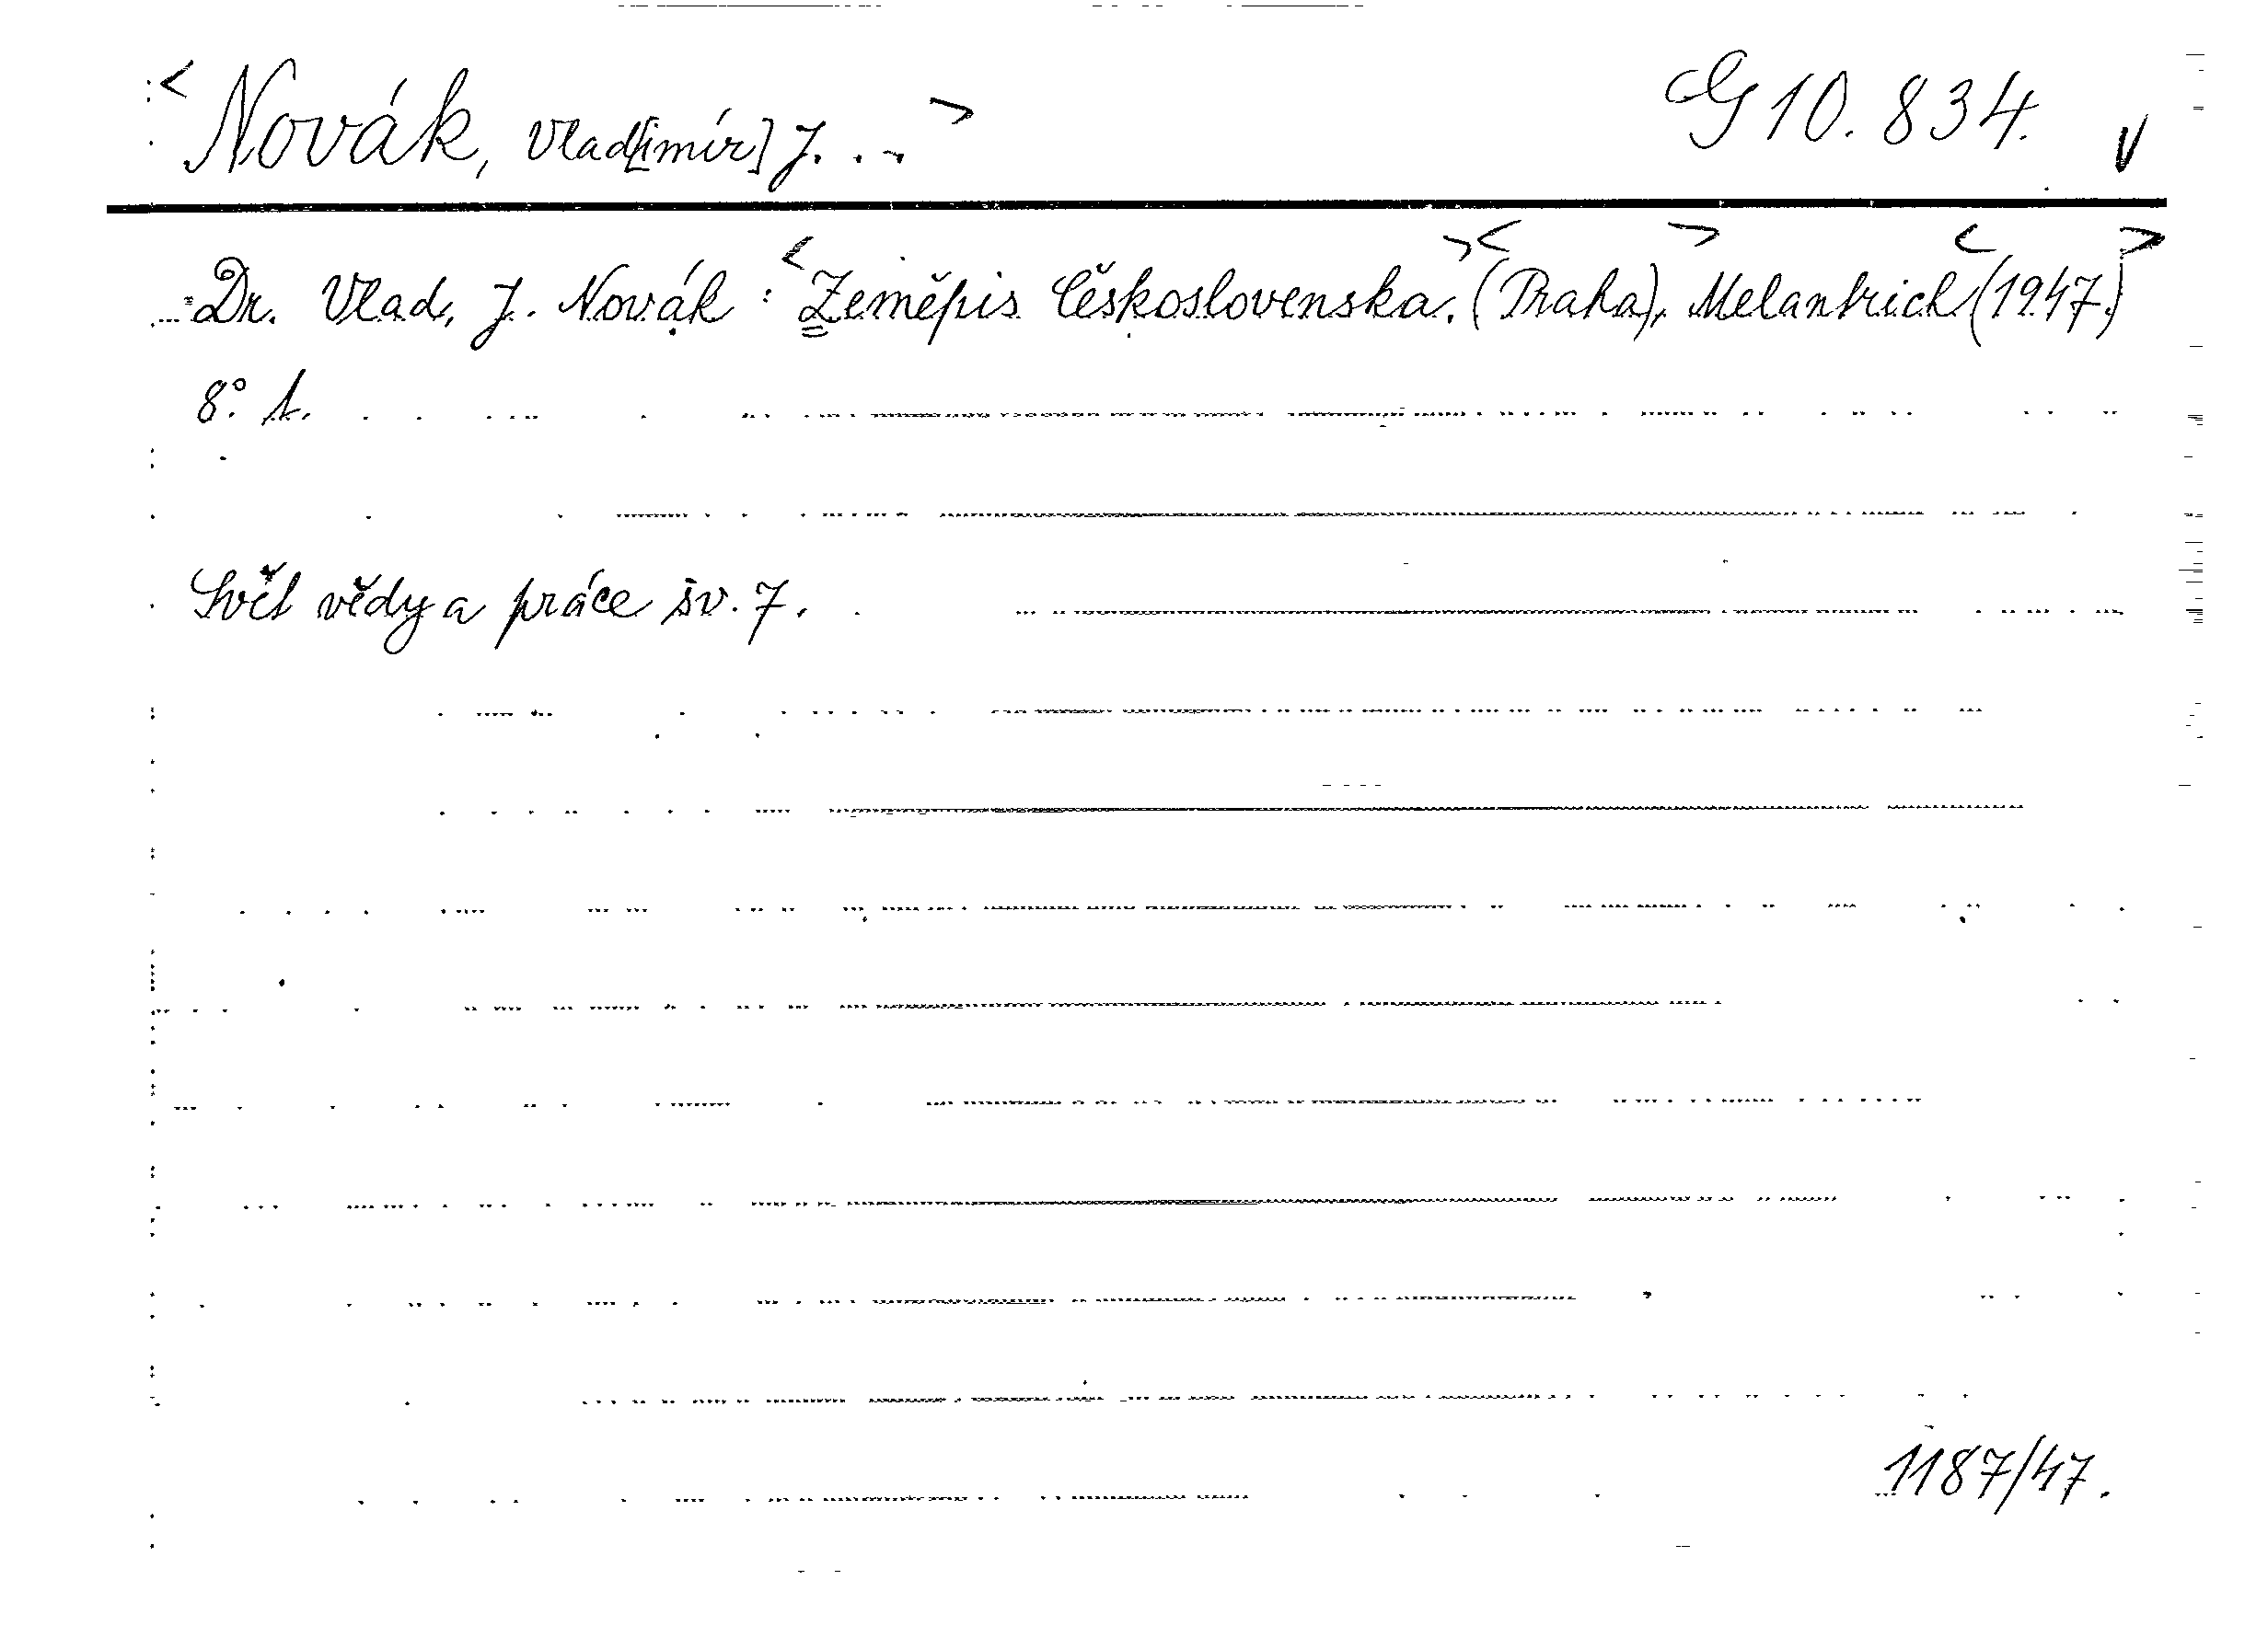 <Novák, Vlad[imír] J. . . > G 10.834. V
Dr. Vlad. J. Novák : <Zeměpis Československa.> <(Praha),> Melantrich <(1947.)>
8°. 1.
Svět vědy a práce sv. 7.
1187/47.